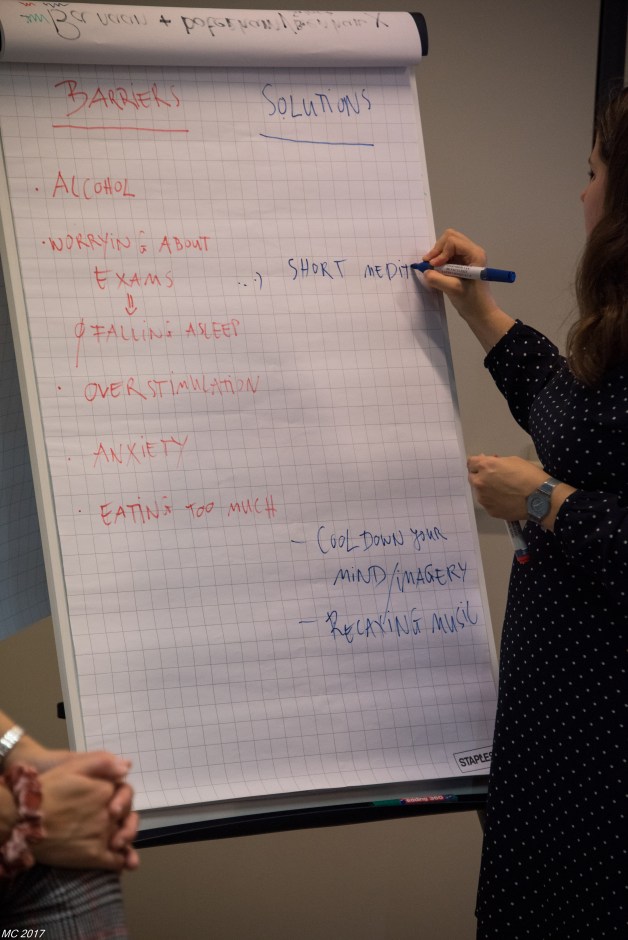 BARRIERS
SOLUTIONS
· ALCOHOL
· WORRYING ABOUT
EXAMS
⇓
∅ FALLING ASLEEP
...) SHORT MEDIT
· OVERSTIMULATION
· ANXIETY
· EATING TOO MUCH
- COOL DOWN YOUR
MIND/IMAGERY
- RELAXING MUSIC
STAPLES
MC 2017